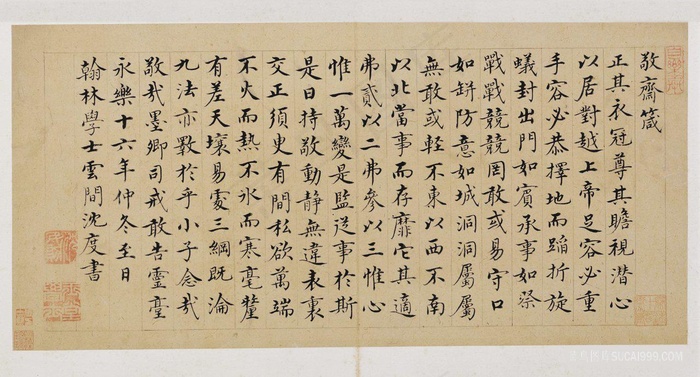 敬齋箴
正其衣冠尊其瞻視潛心
以居對越上帝足容必重
手容必恭擇地而蹈折旋
蟻封出門如賓承事如祭
戰戰兢兢罔敢或易守口
如缾防意如城洞洞屬屬
無敢或輕不東以西不南
以北當事而存靡它其適
弗貳以二弗參以三惟心
惟一萬變是監從事於斯
是曰持敬動靜無違表裏
交正須臾有間私欲萬端
不火而熱不冰而寒毫釐
有差天壤易處三綱既淪
九法亦斁於乎小子念哉
敬哉墨卿司戒敢告靈臺
永樂十六年仲冬至日
翰林學士雲間沈度書
SUCAI999.COM